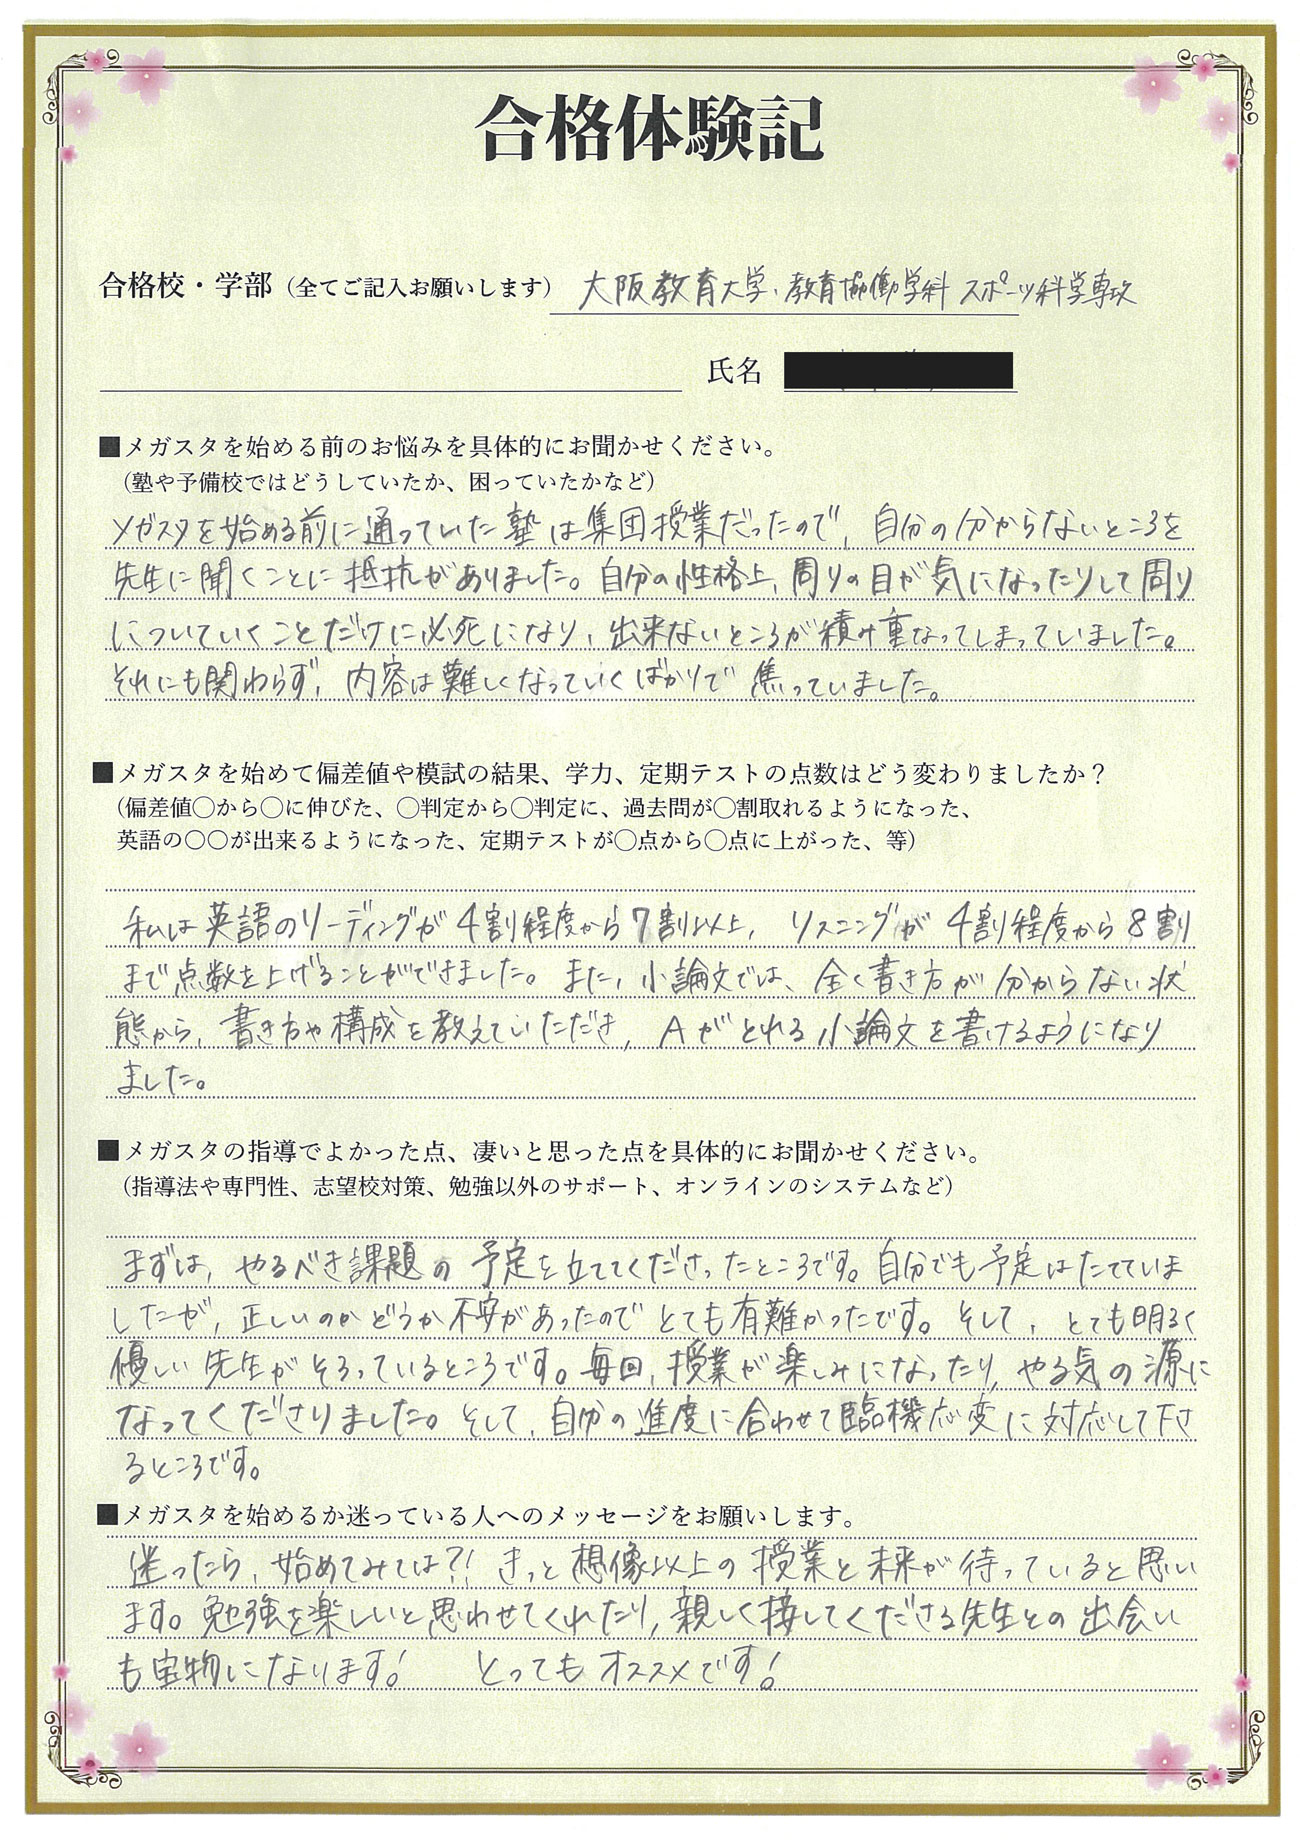 合格体験記
合格校・学部（全てご記入お願いします） 大阪教育大学・教育協働学科 スポーツ科学専攻
氏名
■メガスタを始める前のお悩みを具体的にお聞かせください。
（塾や予備校ではどうしていたか、困っていたかなど）
メガスタを始める前に通っていた塾は集団授業だったので、自分の分からないところを
先生に聞くことに抵抗がありました。自分の性格上、周りの目が気になったりして周り
についていくことだけに必死になり、出来ないところが積み重なってしまっていました。
それにも関わらず、内容は難しくなっていくばかりで焦っていました。
■メガスタを始めて偏差値や模試の結果、学力、定期テストの点数はどう変わりましたか？
（偏差値〇から〇に伸びた、〇判定から〇判定に、過去問が〇割取れるようになった、
英語の〇〇が出来るようになった、定期テストが〇点から〇点に上がった、等）
私は英語のリーディングが4割程度から7割以上、リスニングが4割程度から8割
まで点数を上げることができました。また、小論文では、全く書き方が分からない状
態から、書き方や構成を教えていただき、Aがとれる小論文を書けるようになり
ました。
■メガスタの指導でよかった点、凄いと思った点を具体的にお聞かせください。
（指導法や専門性、志望校対策、勉強以外のサポート、オンラインのシステムなど）
まずは、やるべき課題の予定を立ててくださったところです。自分でも予定はたてていま
したが、正しいのかどうか不安があったのでとても有難かったです。そして、とても明るく
優しい先生がそろっているところです。毎回、授業が楽しみになったり、やる気の源に
なってくださりました。そして、自分の進度に合わせて臨機応変に対応して下さ
るところです。
■メガスタを始めるか迷っている人へのメッセージをお願いします。
迷ったら、始めてみては?! きっと想像以上の授業と未来が待っていると思い
ます。勉強を楽しいと思わせてくれたり、親しく接してくださる先生との出会い
も宝物になります! とってもオススメです!